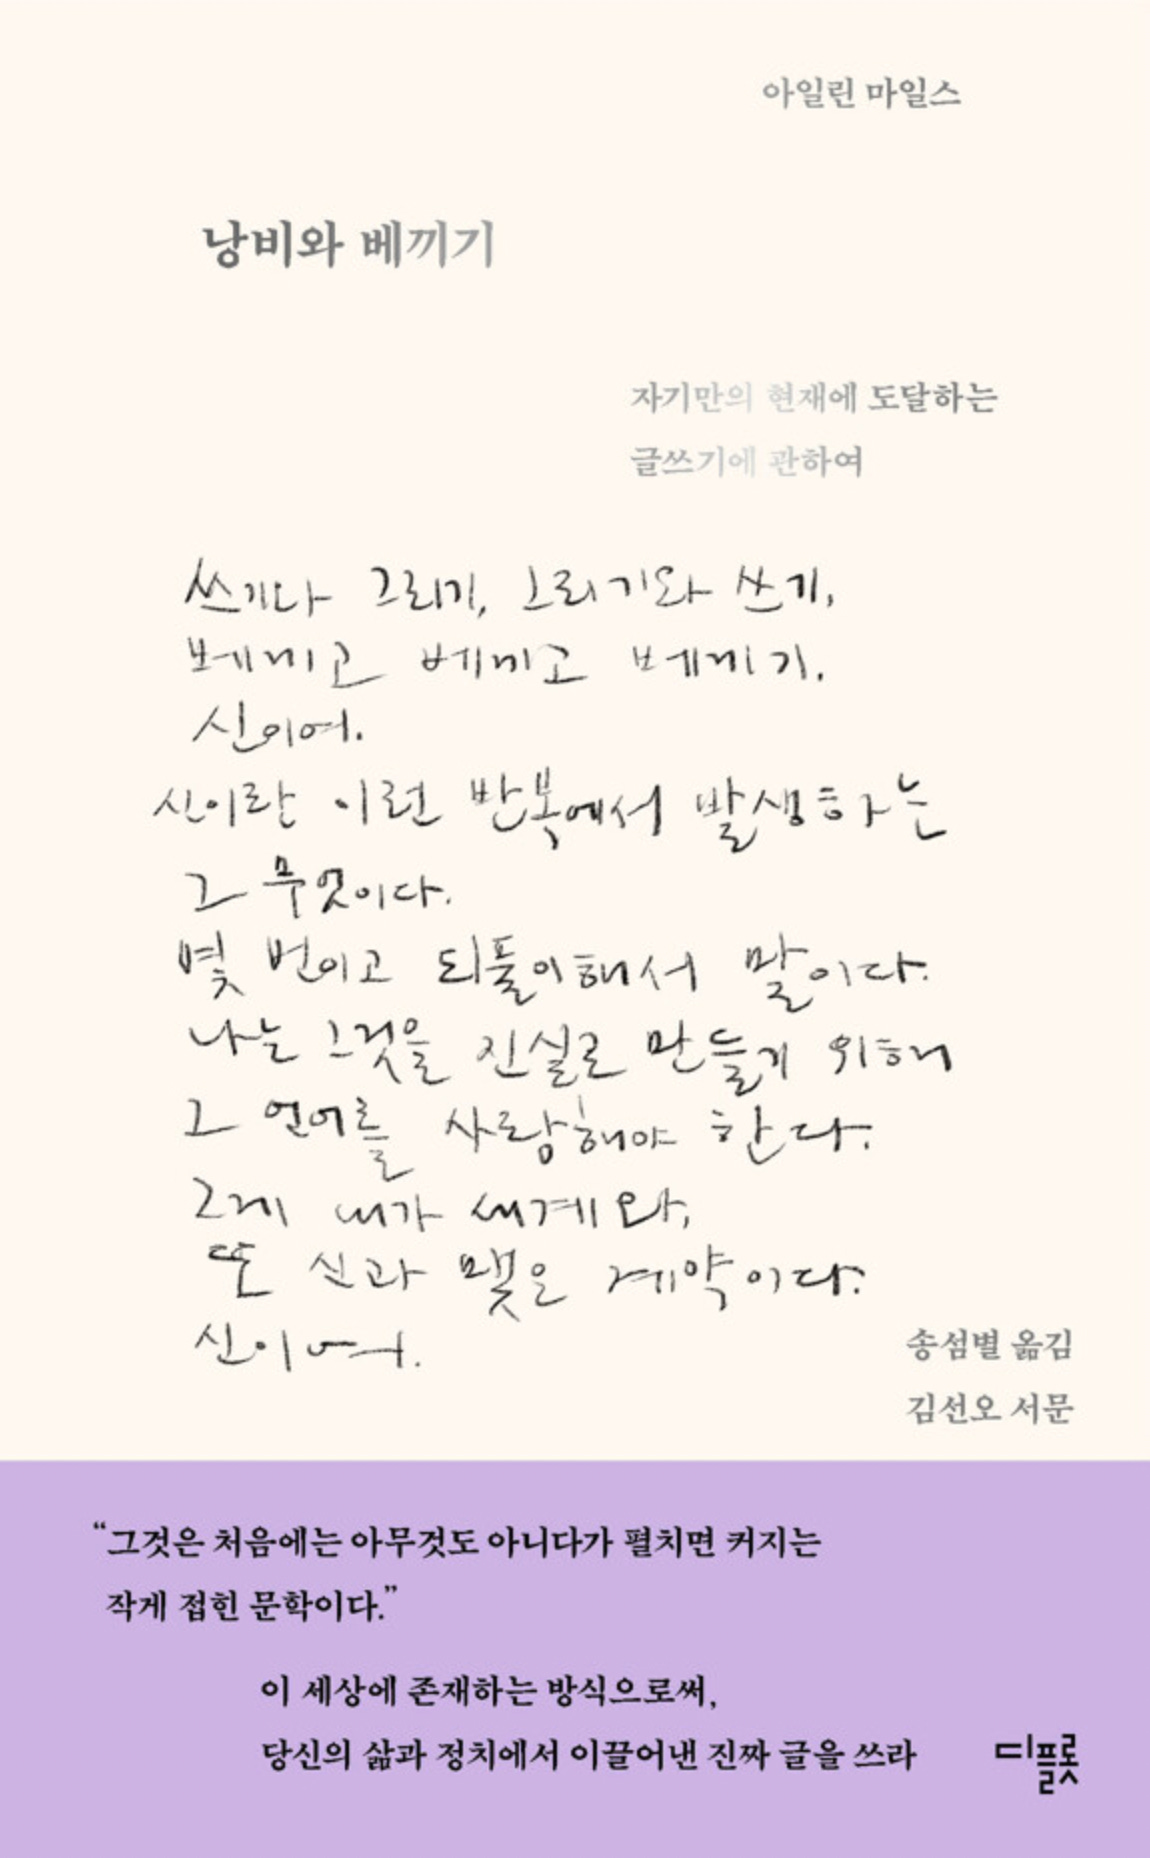 아일린 마일스
낭비와 베끼기
자기만의 현재에 도달하는
글쓰기에 관하여
쓰기와 그리기, 그리기와 쓰기,
베끼고 베끼고 베끼기.
신이여.
신이란 이런 반복에서 발생하는
그 무엇이다.
몇 번이고 되풀이해서 말이다.
나는 그것을 진실로 만들기 위해
그 언어를 사랑해야 한다.
그게 내가 세계와,
또 신과 맺은 계약이다.
신이여.
송섬별 옮김
김선오 서문
“그것은 처음에는 아무것도 아니다가 펼치면 커지는
작게 접힌 문학이다.”
이 세상에 존재하는 방식으로써,
당신의 삶과 정치에서 이끌어낸 진짜 글을 쓰라
디플롯